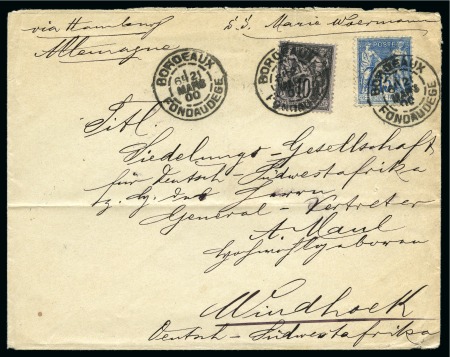 via Hamburg
S. S. Marie Woermann
Allemagne
BORDEAUX
21
MARS
00
FONDAUDEGE
BORDEAUX
10
POSTES
BORDEAUX
MARS
00
FONDAUDEGE
Titl.
Siedelungs-Gesellschaft
für Deutsch-Südwestafrika
z. H. des Herrn
General-Vertreter
A. Maul
Hochwohlgeboren
Windhoek
Deutsch-Südwestafrika